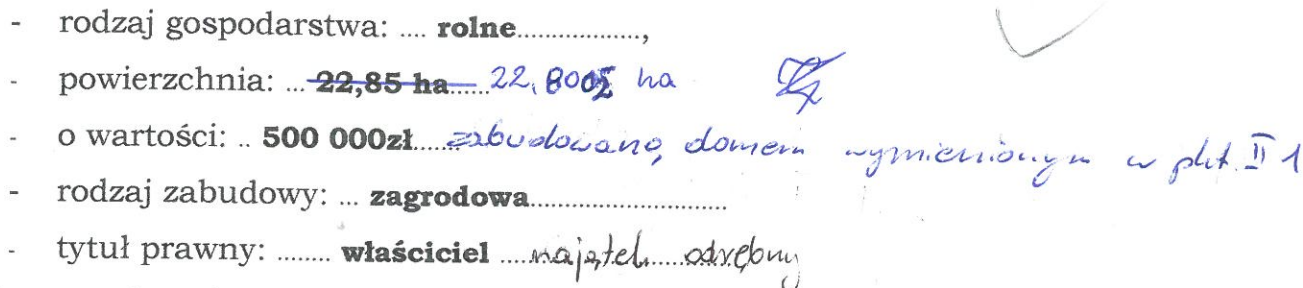 - rodzaj gospodarstwa: .... rolne.................,
- powierzchnia: ... 22,85 ha...... 22,8002 ha
- o wartości: .. 500 000zł....... zabudowane, domem wymienionym w pkt. II 1
- rodzaj zabudowy: ... zagrodowa............................
- tytuł prawny: ........ właściciel ..... majątek odrębny